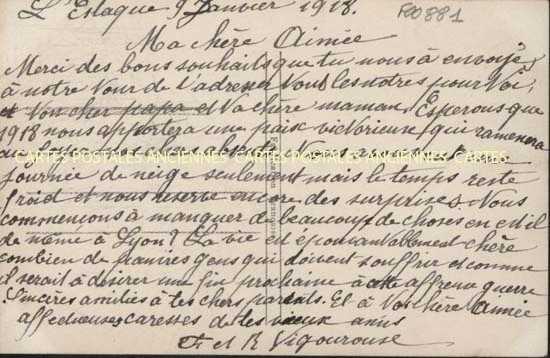 L'Estaque 9 Janvier 1918. R00881
Ma chère Aimée
Merci des bons souhaits que tu nous à envoyé,
à notre tour de t'adresser tous les notres pour toi,
et ton cher papa et ta chère maman. Esperons que
1918 nous apportera une paix victorieuse qui ramenera
CARTES POSTALES ANCIENNES CARTES POSTALES ANCIENNES CARTES POSTALES ANCIENNES
journée de neige seulement mais le temps reste
froid et nous reserve encore des surprises. Nous
commençons à manquer de beaucoup de choses en est il
de même à Lyon? La vie est épouvantablement chère
combien de pauvres gens qui doivent souffrir et comme
il serait à désirer une fin prochaine à cette affreuse guerre
Sincères amitiés à tes chers parents. Et à toi chère Aimée
affectueuses caresses de tes vieux amis
F et R Vigourouse